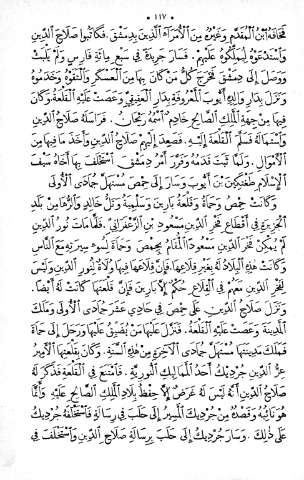 • ١١٧ •
فخافه ابن المقدم وغيره من الأمراء الذين بدمشق. فكاتبوا صلاح الدين
واستدعوه ليملكوه عليهم. فسار جريدة في سبع مائة فارس ولم يلبث
ووصل إلى دمشق فخرج كل من كان بها من العسكر والتقوه وخدموه
ونزل بدار والده أيوب المعروفة بدار العقيقي وعصت عليه القلعة وكان
فيها من جهة الملك الصالح خادم اسمه ريحان. فراسله صلاح الدين
واستماله فسلم القلعة إليه. فصعد إليها صلاح الدين وأخذ ما فيها من
الأموال. ولما ثبت قدمه وقرر أمر دمشق استخلف بها أخاه سيف
الإسلام طغتكين بن أيوب وسار إلى حمص مستهل جمادى الأولى
وكانت حمص وحماة وقلعة بارين وسلمية وتل خالد والرها من بلد
الجزيرة في أقطاع فخر الدين مسعود بن الزعفراني. فلما مات نور الدين
لم يمكن فخر الدين مسعودا المقام بحمص وحماة لسوء سيرته مع الناس
وكانت هذه البلاد له بغير قلاعها. فإن قلاعها فيها ولاة لنور الدين وليس
لفخر الدين معهم في القلاع حكم إلا بارين فإن قلعتها كانت له أيضا.
ونزل صلاح الدين على حمص في حادي عشر جمادى الأولى وملك
المدينة وعصت عليه القلعة. فترك عليها من يضيق عليها ورحل إلى حماة
فملك مدينتها مستهل جمادى الآخرة من هذه السنة. وكان بقلعتها الأمير
عز الدين جرديك أحد المماليك النورية. فامتنع في القلعة فذكر له
صلاح الدين أنه ليس له غرض إلا حفظ بلاد الملك الصالح عليه وإنما
هو نائبه وقصده من جرديك المسير إلى حلب في رسالة فاستخلفه جرديك
على ذلك. وسار جرديك إلى حلب برسالة صلاح الدين واستخلف في